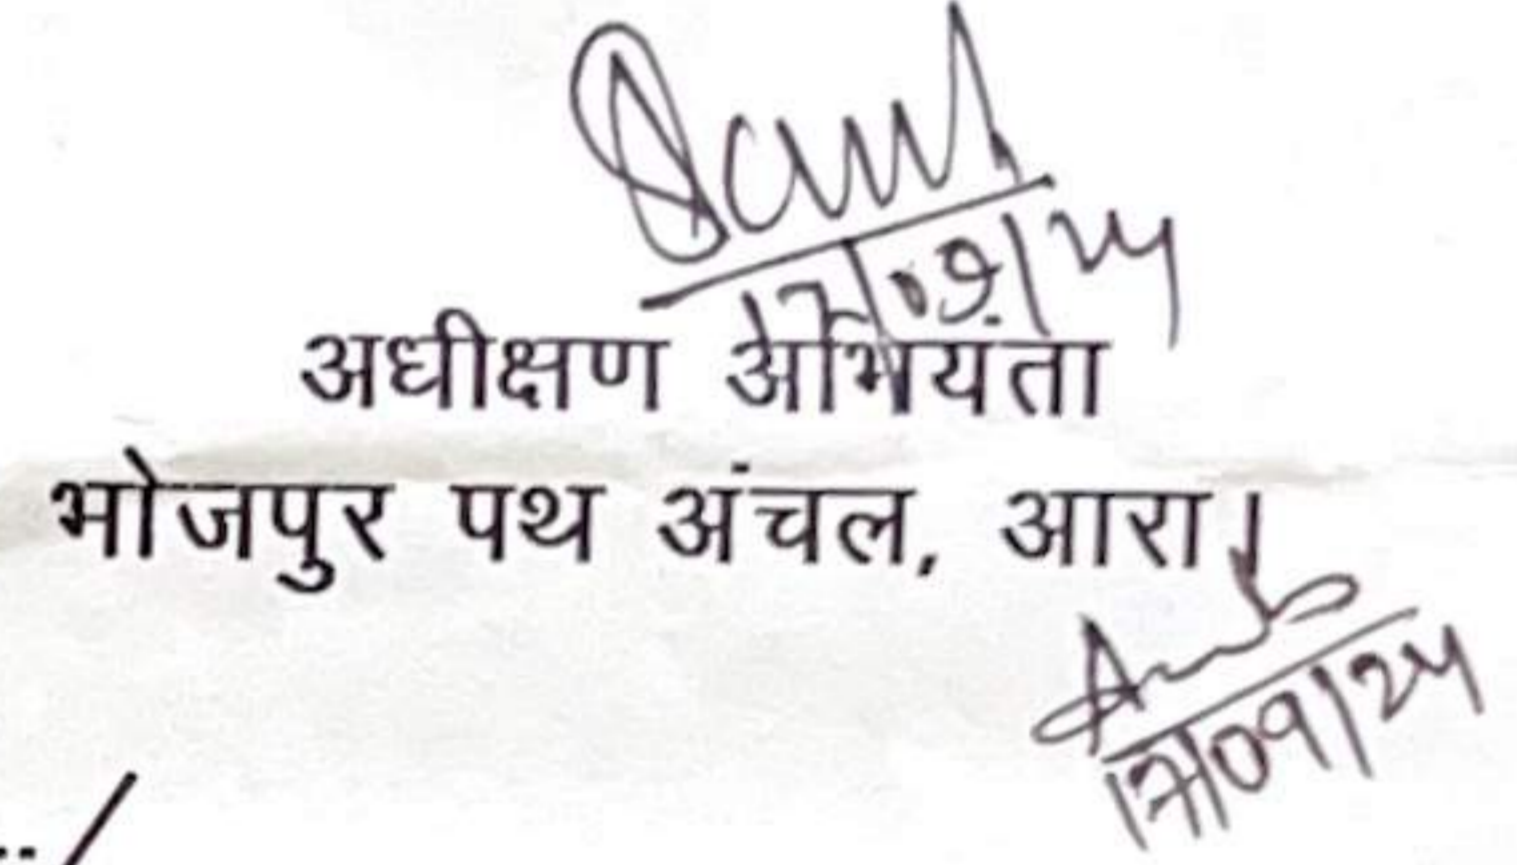 17/09/24
अधीक्षण अभियंता
भोजपुर पथ अंचल, आरा।
17/09/24
../